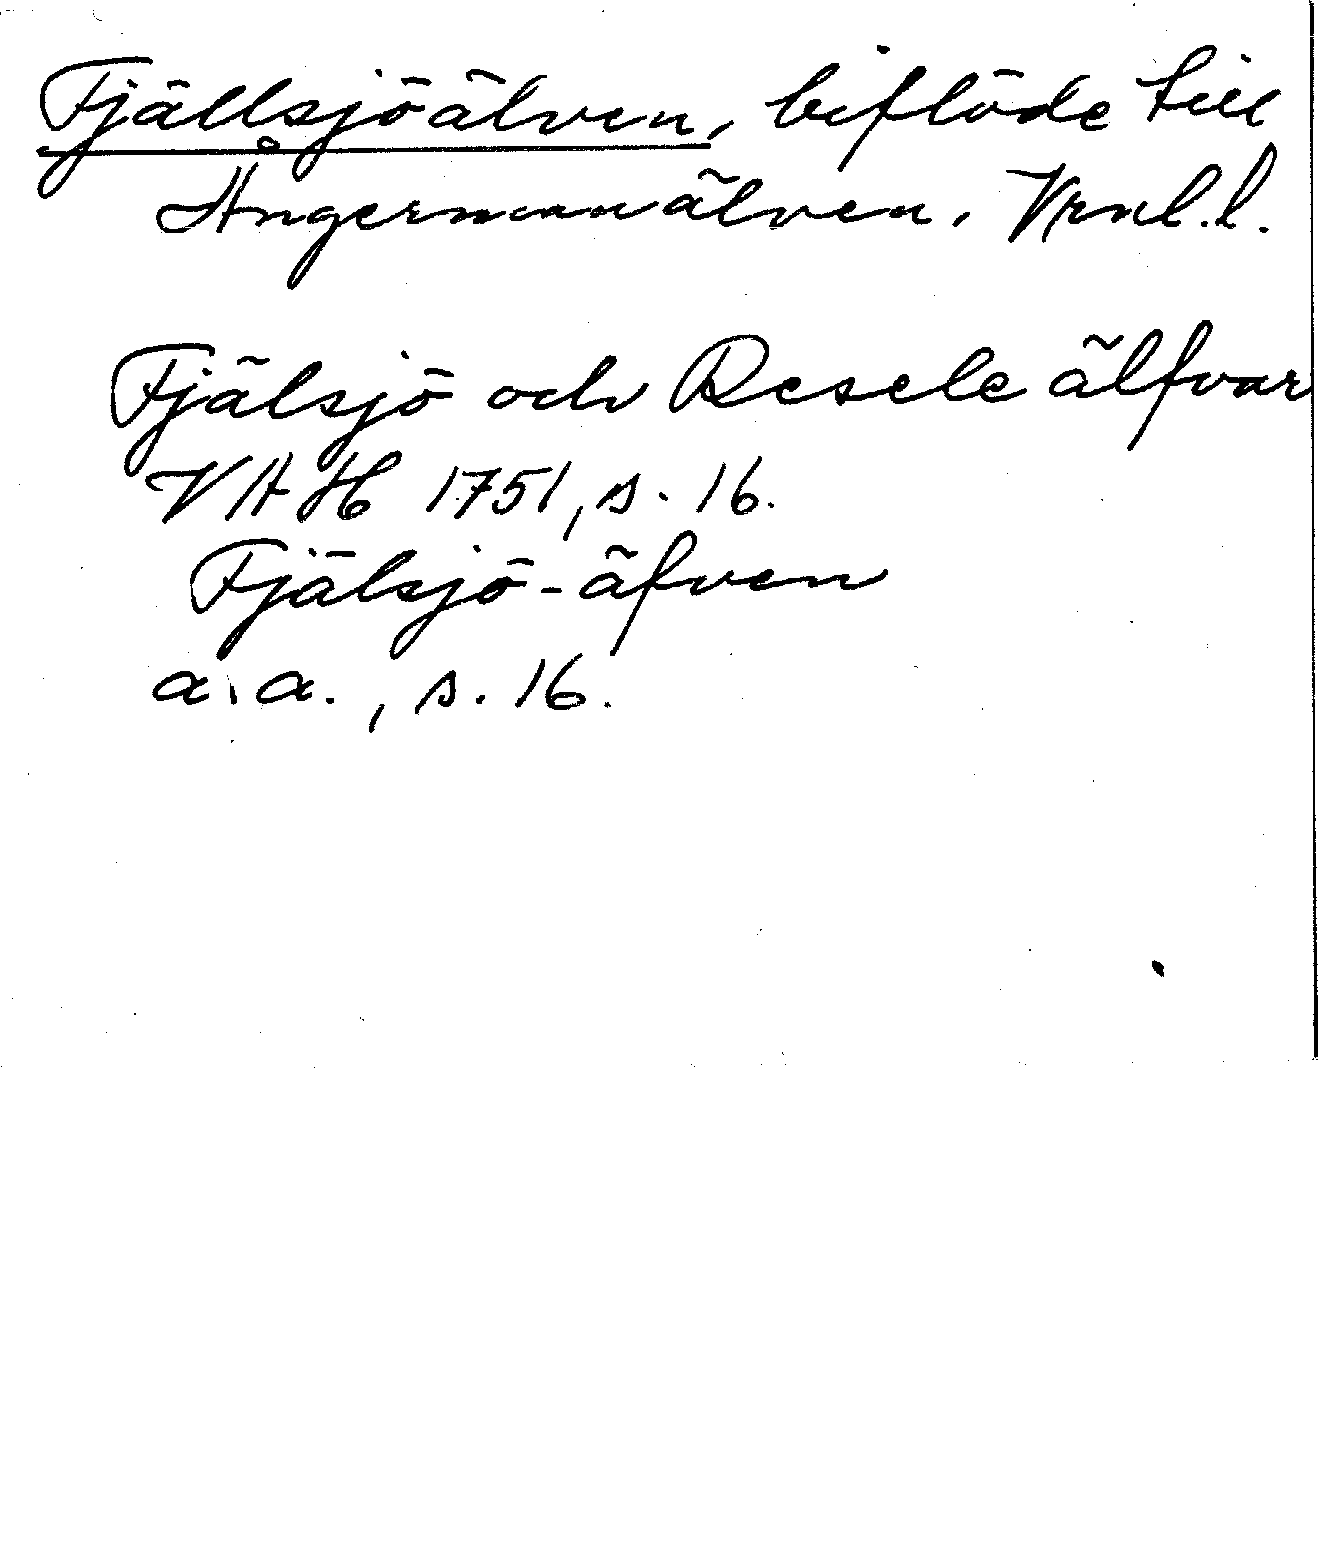 Fjällsjöälven, biflöde till
Ångermanälven. Vrnl.l.
Fjälsjö och Resele älfvar
VAH 1751, s. 16.
Fjälsjö-äfven
a.a., s. 16.